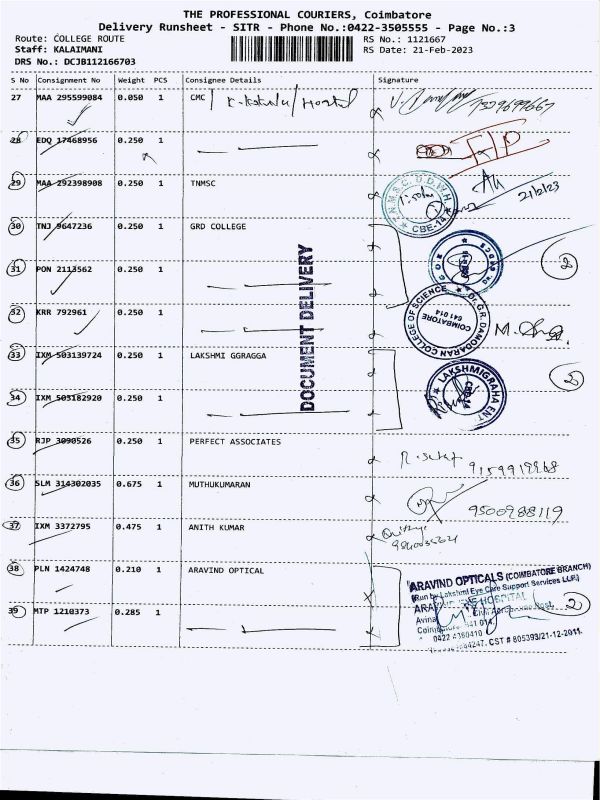 THE PROFESSIONAL COURIERS, Coimbatore
Delivery Runsheet - SITR - Phone No.:0422-3505555 - Page No.:3
Route: COLLEGE ROUTE
RS No.: 1121667
Staff: KALAIMANI
RS Date: 21-Feb-2023
DRS No.: DCJB112166703
S No Consignment No Weight PCS Consignee Details Signature
27 MAA 295599084 0.050 1 CMC
28 EDQ 17468956 0.250 1
29 MAA 292398908 0.250 1 TNMSC
21/2/23
30 TNJ 9647236 0.250 1 GRD COLLEGE
31 PON 2113562 0.250 1
2
32 KRR 792961 0.250 1
DOCUMENT DELIVERY
DR. G.R. DAMODARAN COLLEGE OF SCIENCE
COIMBATORE
641 014
33 IXM 503139724 0.250 1 LAKSHMI GGRAGGA
2
LAKSHMIGRAHA ENT
CBE-14
34 IXM 503182920 0.250 1
35 RJP 3090526 0.250 1 PERFECT ASSOCIATES
36 SLM 314302035 0.675 1 MUTHUKUMARAN
9500988119
37 IXM 3372795 0.475 1 ANITH KUMAR
38 PLN 1424748 0.210 1 ARAVIND OPTICAL
ARAVIND OPTICALS (COIMBATORE BRANCH)
(Run by Lakshmi Eye Care Support Services LLP.)
EYE HOSPITAL
39 MTP 1210373 0.285 1
2
641 014.
0422 4360410
CST # 805393/21-12-2011.